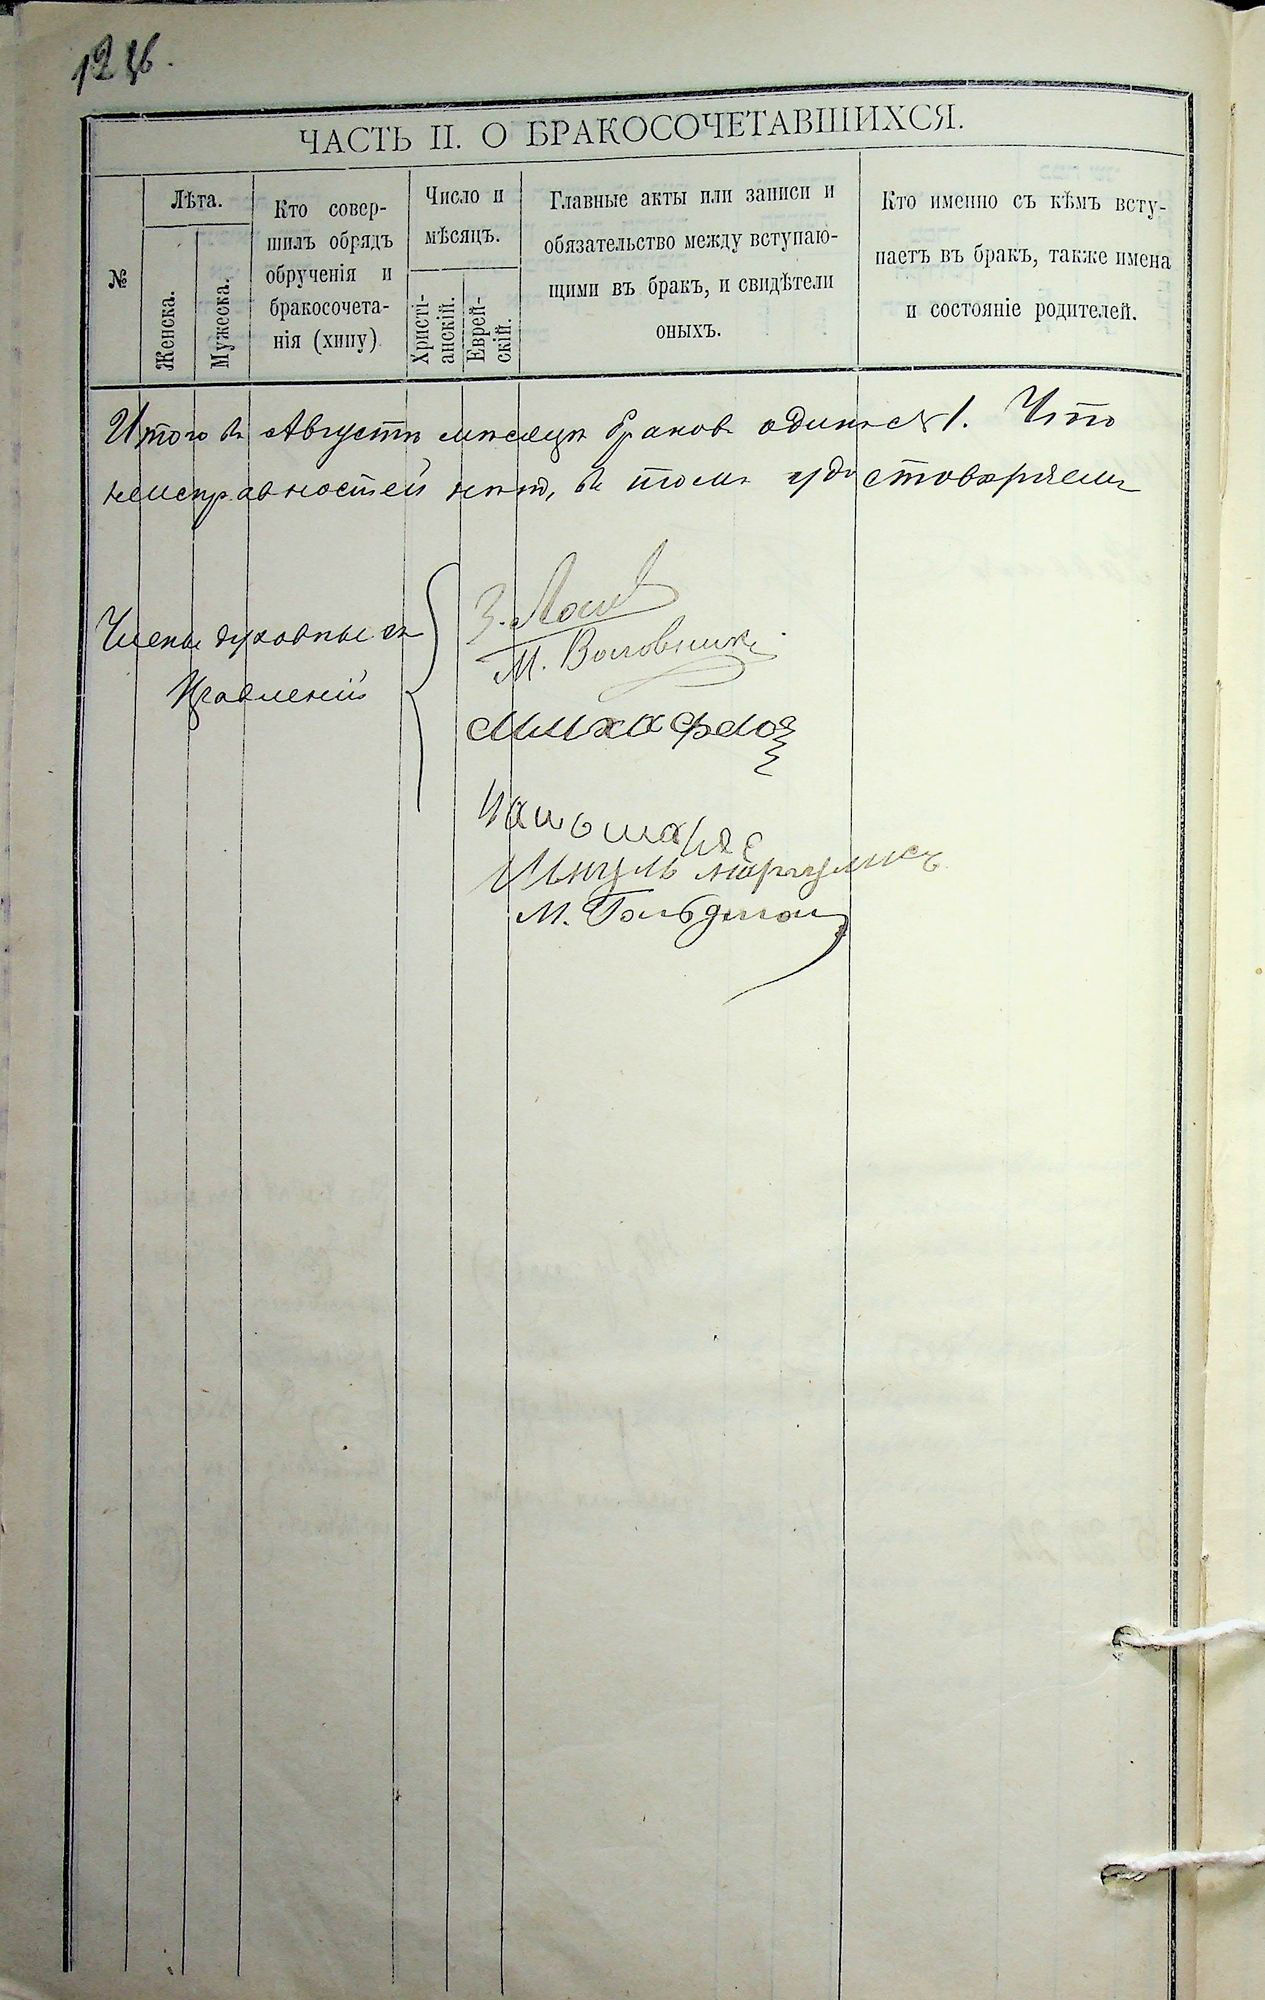 ЧАСТЬ II. О БРАКОСОЧЕТАВШИХСЯ.
№
Лѣта.
Женска.
Мужеска.
Кто совер-
шилъ обрядъ
обрученія и
бракосочета-
нія (хипу)
Число и
мѣсяцъ.
Христі-
анскій.
Еврей-
скій.
Главные акты или записи и
обязательство между вступаю-
щими въ бракъ, и свидѣтели
оныхъ.
Кто именно съ кѣмъ всту-
паетъ въ бракъ, также имена
и состояніе родителей.
Итого въ Августѣ мѣсяцѣ браковъ одинъ № 1. Что
неисправностей нѣтъ, въ томъ удостовѣряемъ
Члены духовныхъ
Правленій
М.
М. Гольдман